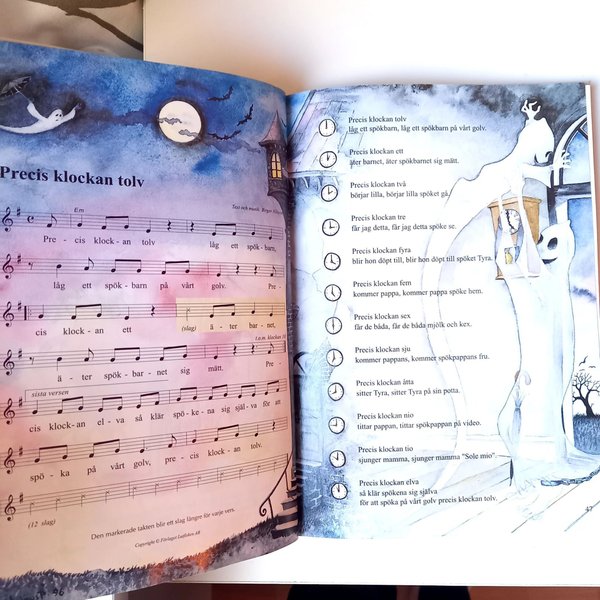 Precis klockan tolv
Em
Text och musik: Birger
Pre - cis klock - an tolv låg ett spök - barn,
låg ett spök - barn på vårt golv. Pre -
cis klock - an ett (slag) ä - ter bar - net,
t.o.m. klockan
ä - ter spök - bar - net sig mätt. Pre -
sista versen
cis klock - an el - va så klär spö - ke - na sig själ - va för att
spö - ka på vårt golv, pre - cis klock - an tolv.
(12 slag)
Den markerade takten blir ett slag längre för varje vers.
Copyright © Förlaget Lutfisken AB
96
Precis klockan tolv
låg ett spökbarn, låg ett spökbarn på vårt golv.
Precis klockan ett
äter barnet, äter spökbarnet sig mätt.
Precis klockan två
börjar lilla, börjar lilla spöket gå.
Precis klockan tre
får jag detta, får jag detta spöke se.
Precis klockan fyra
blir hon döpt till, blir hon döpt till spöket Tyra.
Precis klockan fem
kommer pappa, kommer pappa spöke hem.
Precis klockan sex
får de båda, får de båda mjölk och kex.
Precis klockan sju
kommer pappans, kommer spökpappans fru.
Precis klockan åtta
sitter Tyra, sitter Tyra på sin potta.
Precis klockan nio
tittar pappan, tittar spökpappan på video.
Precis klockan tio
sjunger mamma, sjunger mamma "Sole mio".
Precis klockan elva
så klär spökena sig själva
för att spöka på vårt golv precis klockan tolv.